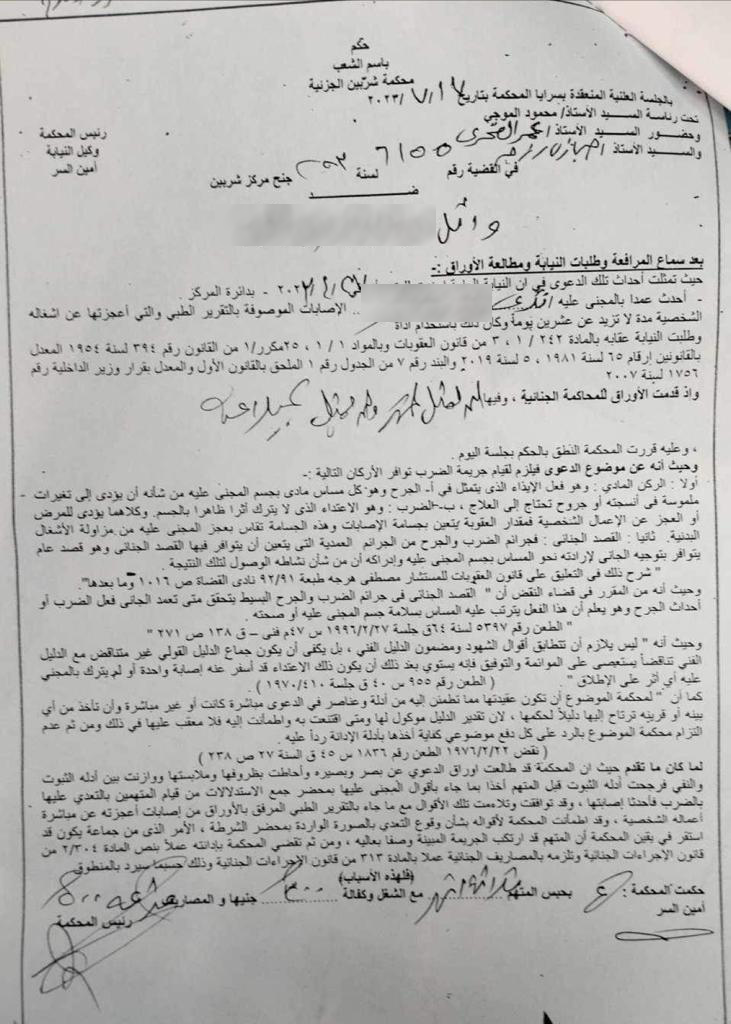 حكم
باسم الشعب
محكمة شربين الجزئية
بالجلسة العلنية المنعقدة بسرايا المحكمة بتاريخ ١٧/٧/٢٠٢٣
تحت رئاسة السيد الأستاذ/ محمود الموجي رئيس المحكمة
وحضور السيد الأستاذ/ وكيل النيابة
والسيد الأستاذ أمين السر
في القضية رقم ٦١٥٥ لسنة ٢٠٢٣ جنح مركز شربين
ضــــد
وائل
بعد سماع المرافعة وطلبات النيابة ومطالعة الأوراق :-
حيث تمثلت أحداث تلك الدعوى في ان النيابة - بدائرة المركز
- أحدث عمدا بالمجنى عليه .. الإصابات الموصوفة بالتقرير الطبي والتي أعجزتها عن اشغاله
الشخصية مدة لا تزيد عن عشرين يوماً وكان ذلك باستخدام اداة
وطلبت النيابة عقابه بالمادة ٢٤٢ / ١ ، ٣ من قانون العقوبات وبالمواد ١ / ١ ، ٢٥مكرر/١ من القانون رقم ٣٩٤ لسنة ١٩٥٤ المعدل
بالقانونين إرقام ٦٥ لسنة ١٩٨١ ، ٥ لسنة ٢٠١٩ والبند رقم ٧ من الجدول رقم ١ الملحق بالقانون الأول والمعدل بقرار وزير الداخلية رقم
١٧٥٦ لسنة ٢٠٠٧
وإذ قدمت الأوراق للمحاكمة الجنائية ، وفيها
، وعليه قررت المحكمة النطق بالحكم بجلسة اليوم .
وحيث أنه عن موضوع الدعوى فيلزم لقيام جريمة الضرب توافر الأركان التالية :-
أولا : الركن المادي : وهو فعل الإيذاء الذي يتمثل في أ- الجرح وهو كل مساس مادى بجسم المجنى عليه من شأنه أن يؤدى إلى تغيرات
ملموسة فى أنسجته أو جروح تحتاج إلى العلاج ، ب-الضرب : وهو الاعتداء الذى لا يترك أثرا ظاهرا بالجسم. وكلاهما يؤدى للمرض
أو العجز عن الإعمال الشخصية فمقدار العقوبة يتعين بجسامة الإصابات وهذه الجسامة تقاس بعجز المجنى عليه من مزاولة الأشغال
البدنية. ثانيا : القصد الجنائى : فجرائم الضرب والجرح من الجرائم العمدية التى يتعين أن يتوافر فيها القصد الجنائى وهو قصد عام
يتوافر بتوجيه الجاني لإرادته نحو المساس بجسم المجنى عليه وإدراكه أن من شأن نشاطه الوصول لتلك النتيجة .
" شرح ذلك فى التعليق على قانون العقوبات للمستشار مصطفى هرجه طبعة ٩٢/٩١ نادى القضاة ص ١٠١٦ وما بعدها".
وحيث أنه من المقرر فى قضاء النقض أن " القصد الجنائى فى جرائم الضرب والجرح البسيط يتحقق متى تعمد الجانى فعل الضرب أو
أحداث الجرح وهو يعلم أن هذا الفعل يترتب عليه المساس بسلامة جسم المجنى عليه أو صحته .
" الطعن رقم ٥٣٩٧ لسنة ٦٤ق جلسة ١٩٩٦/٢/٢٧ س ٤٧م فنى – ق ١٣٨ ص ٢٧١ "
وحيث أنه " ليس يلازم أن تتطابق أقوال الشهود ومضمون الدليل الفني ، بل يكفى أن يكون جماع الدليل القولي غير متناقض مع الدليل
الفني تناقضاً يستعصى على الموائمة والتوفيق فإنه يستوي بعد ذلك أن يكون ذلك الاعتداء قد أسفر عنه إصابة واحدة أو لم يترك بالمجني
عليه أي أثر على الإطلاق " . ( الطعن رقم ٩٥٥ س ٤٠ ق جلسة ١٩٧٠/٤١٠ ) .
كما أن " لمحكمة الموضوع أن تكون عقيدتها مما تطمئن إليه من أدلة وعناصر في الدعوى مباشرة كانت أو غير مباشرة وأن تأخذ من أي
بينه أو قرينه ترتاح إليها دليلاً لحكمها ، لان تقدير الدليل موكول لها ومتى اقتنعت به واطمأنت إليه فلا معقب عليها في ذلك ومن ثم عدم
التزام محكمة الموضوع بالرد على كل دفع موضوعي كفاية أخذها بأدلة الإدانة رداً عليه .
( نقض ١٩٧٦/٢/٢٢ الطعن رقم ١٨٣٦ س ٤٥ ق السنة ٢٧ ص ٢٣٨ )
لما كان ما تقدم حيث ان المحكمة قد طالعت اوراق الدعوي عن بصر وبصيره وأحاطت بظروفها وملابستها ووازنت بين أدله الثبوت
والنفي فرجحت أدله الثبوت قبل المتهم أخذا بما جاء بأقوال المجنى عليها بمحضر جمع الاستدلالات من قيام المتهمين بالتعدي عليها
بالضرب فأحدثا إصابتها ، وقد توافقت وتلاءمت تلك الأقوال مع ما جاء بالتقرير الطبي المرفق بالأوراق من إصابات أعجزته عن مباشرة
أعماله الشخصية ، وقد اطمأنت المحكمة لأقواله بشأن وقوع التعدي بالصورة الواردة بمحضر الشرطة ، الأمر الذى من جماعة يكون قد
استقر في يقين المحكمة أن المتهم قد ارتكب الجريمة المبينة وصفا بعاليه ، ومن ثم تقضي المحكمة بإدانته عملاً بنص المادة ٢/٣٠٤ من
قانون الإجراءات الجنائية وتلزمه بالمصاريف الجنائية عملا بالمادة ٣١٣ من قانون الإجراءات الجنائية وذلك حسبما سيرد بالمنطوق
(فلهذه الأسباب)
حكمت المحكمة : بحبس المتهم ثلاثة أشهر مع الشغل وكفالة ٣٠٠ جنيها و المصاريف
أمين السر رئيس المحكمة